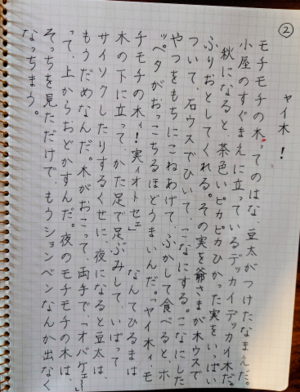 ②
ヤイ木！
モチモチの木、てのはな、豆太がつけたなまえだ。
小屋のすぐまえに立っているデッカイデッカイ木だ。
秋になると、茶色いピカピカひかった実を、いっぱい
ふりおとしてくれる。その実を爺さまが木ウスで
ついて、石ウスでひいて、こなにする。こなにした
やつをもちにこねあげて、ふかして食べると、ホ
ッペタがおっこちるほどうまいんだ。「ヤイ木ィモ
チモチの木ィ！実ィオトセェ」　なんてひるまは
木の下に立って、かた足で足ぶみして、いばって
サイソクしたりするくせに、夜になると豆太は、
もうだめなんだ。木がおこって、両手で、「オバケェ」
って、上からおどかすんだ。夜のモチモチの木は、
そっちを見ただけで、もうションベンなんか出なく
なっちまう。